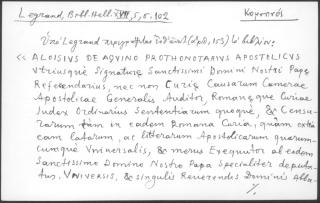 Legrand, Bibl. Hell. XVII, 5, σ. 102
Κομνηνός
Ὁ Legrand περιγράφει (ἀριθ. 105) τὸ βιβλίον:
« ALOISIUS DE AQVINO PROTHONOTARIVS APOSTOLICVS
vtriusquè Signaturę Sanctissimi Domini Nostri Papę
Referendarius, nec non Curię Causarum Camerae
Apostolicae Generalis Auditor, Romanęque Curiae
Iudex Ordinarius Sententiarum quoquè, & Censu-
rarum tàm in eadem Romana Curia, quàm extra
eam latarum, ac Litterarum Apostolicarum quarum-
cumquè Vniuersalis, & merus Exequutor ab eodem
Sanctissimo Domino Nostro Papa Specialiter deputa-
tus. VNIVERSIS, & singulis Reuerendis Dominis Abba-
./.